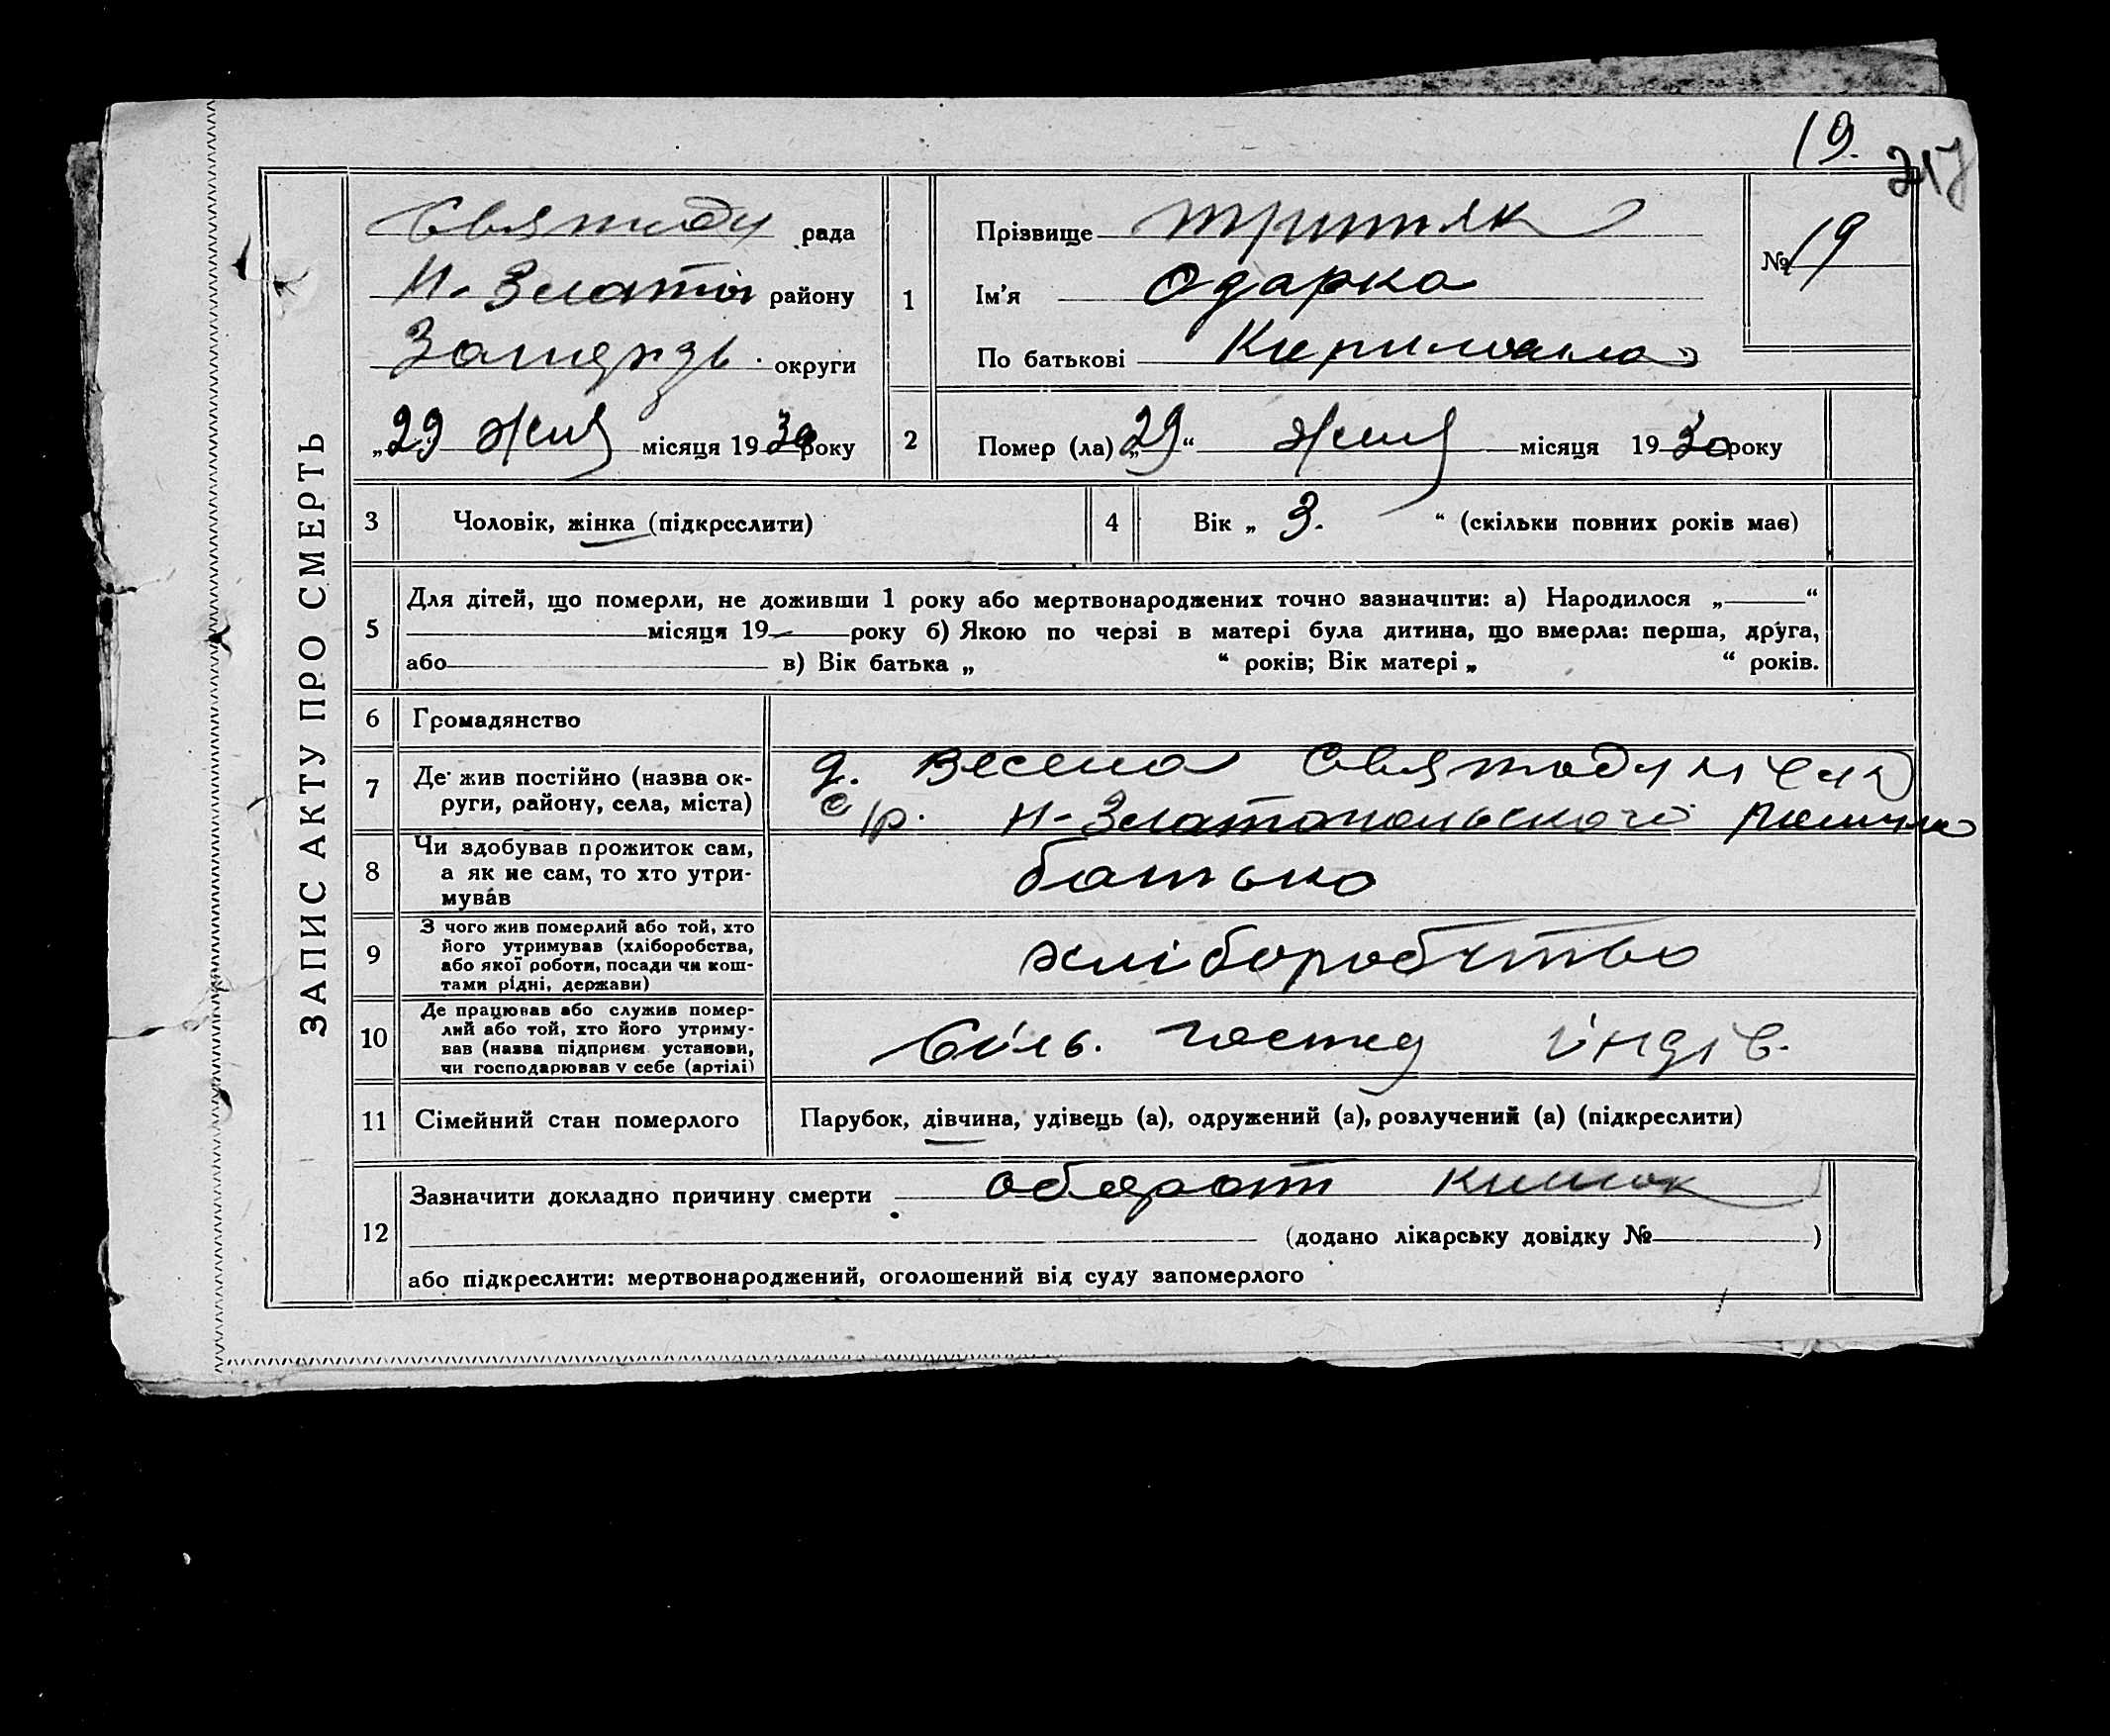 19.
217
ЗАПИС АКТУ ПРО СМЕРТЬ
Святоду рада
Н-Златоп району
Запоріз. округи
„29 Жня місяця 1930 року
1
Прізвище Тритяк
Ім'я Одарка
По батькові
№ 19
2
Помер (ла) „29“ Жня місяця 1930 року
3
Чоловік, жінка (підкреслити)
4
Вік „ 3. “ (скільки повних років має)
5
Для дітей, що померли, не доживши 1 року або мертвонароджених точно зазначити: а) Народилося „ “
місяця 19 року б) Якою по черзі в матері була дитина, що вмерла: перша, друга,
або в) Вік батька „ “ років; Вік матері „ “ років.
6
Громадянство
7
Де жив постійно (назва ок-
руги, району, села, міста)
д. Весела
с/р. Н-Златопольського району
8
Чи здобував прожиток сам,
а як не сам, то хто утри-
мував
батько
9
З чого жив померлий або той, хто
його утримував (хліборобства,
або якої роботи, посади чи кош-
тами рідні, держави)
хліборобство
10
Де працював або служив помер-
лий або той, хто його утриму-
вав (назва підприєм. установи,
чи господарював у себе (артілі)
Сіль. госпд індів.
11
Сімейний стан померлого
Парубок, дівчина, удівець (а), одружений (а), розлучений (а) (підкреслити)
12
Зазначити докладно причину смерти оберот кишок
(додано лікарську довідку № )
або підкреслити: мертвонароджений, оголошений від суду запомерлого